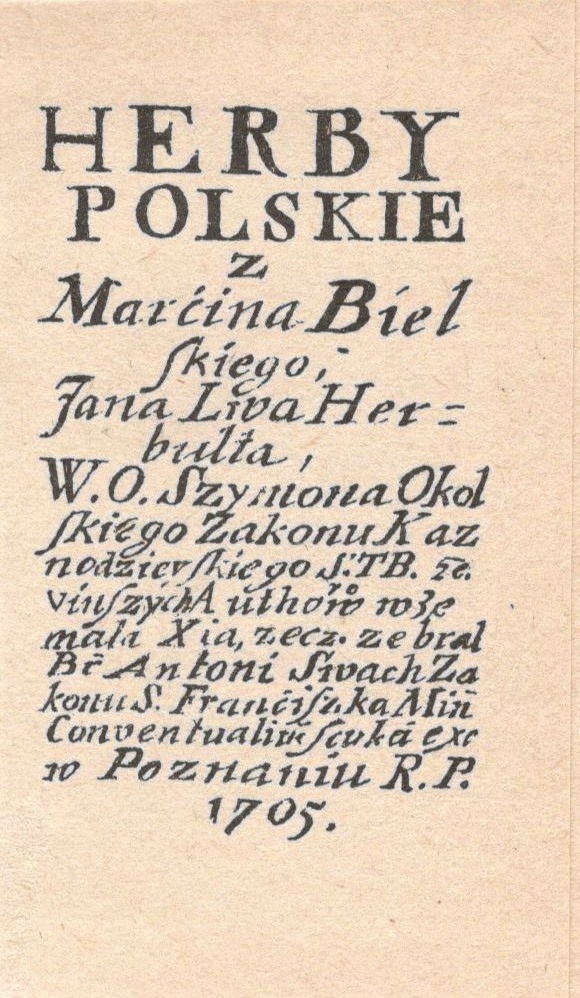 HERBY
POLSKIE
z
Marćina Biel
ſkiego,
Jana Lwa Her=
bulta,
W. O. Szymona Okol
ſkiego Zakonu Kaz
nodzierſkiego S. TB.
Authorów wże
mała Xia, zecz. zebrał
Br̃ Antoni Swach Za
konu S. Franćiſzka Miñ
ſcuka exc
w Poznaniu R. P.
1705.